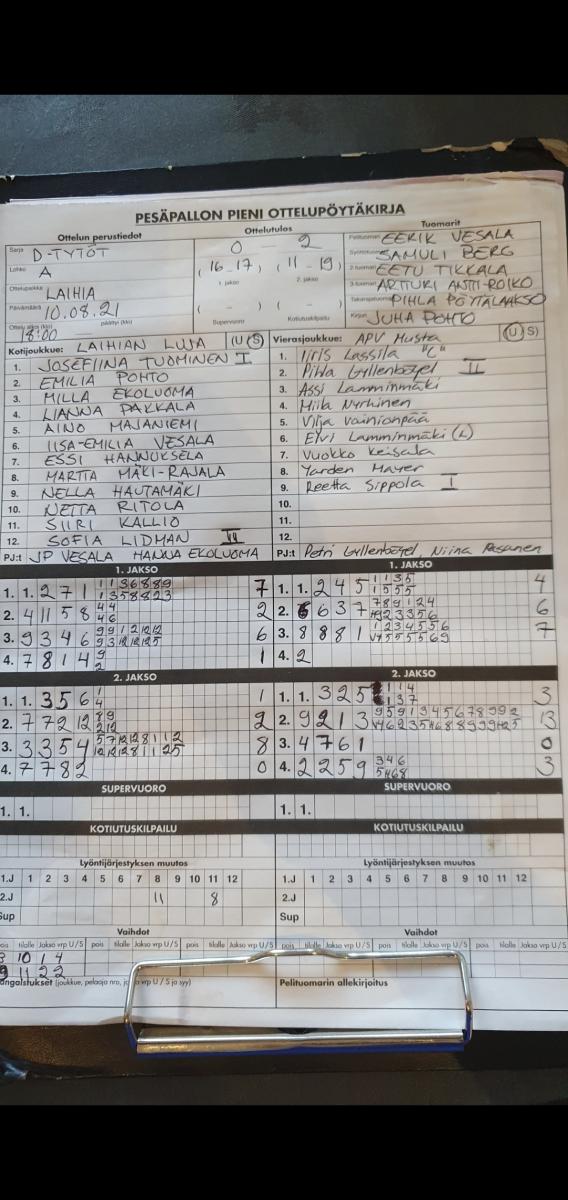 PESÄPALLON PIENI OTTELUPÖYTÄKIRJA
Ottelun perustiedot Ottelutulos Tuomarit
Sarja D-TYTÖT 0 - 2 Pelituomari EERIK VESALA
Lohko A (16-17) (11-19) SAMULI BERG
1. jakso 2. jakso 2-tuomari EETU TIKKALA
Ottelupaikka LAIHIA 3-tuomari ARTTURI ANTTI-ROIKO
Päivämäärä 10.08.21 ( - ) ( - ) Takarajatuomari PIHLA PÖYTÄLAAKSO
18:00 päättyi (klo) Supervuoro Kotiutuskilpailu Kirjuri JUHA POHTO
Kotijoukkue: LAIHIAN LUJA (U S) Vierasjoukkue: APV Musta (U S)
1. JOSEFIINA TUOMINEN I 1. Iiris Lassila "C"
2. EMILIA POHTO 2. Pihla Gyllenbögel II
3. MILLA EKOLUOMA 3. Assi Lamminmäki
4. LIANNA PAKKALA 4. Miila Nyrhinen
5. AINO MAJANIEMI 5. Vilja Vainionpää
6. IISA-EMILIA VESALA 6. Elvi Lamminmäki (L)
7. ESSI HANNUKSELA 7. Vuokko Keisala
8. MARTTA MÄKI-RAJALA 8. Yarden Mayer
9. NELLA HAUTAMÄKI 9. Reetta Sippola I
10. NETTA RITOLA 10.
11. SIIRI KALLIO 11.
12. SOFIA LIDMAN 12.
PJ:t JP VESALA HANNA EKOLUOMA PJ:t Petri Gyllenbögel, Niina
1. JAKSO 1. JAKSO
1. 1. 2 7 1 1 1 3 6 8 8 9 7 1. 1. 2 4 5 1 1 3 5 4
1 3 5 8 8 2 3 1 5 5 5
2. 4 11 5 8 4 4 2 2. 6 6 3 7 7 8 9 1 2 4 6
4 6
3. 9 3 4 6 9 9 1 2 12 12 6 3. 8 8 8 1 1 2 3 4 5 5 6 7
9 3 12 12 12 5
4. 7 8 1 4 9 1 4. 2
2
2. JAKSO 2. JAKSO
1. 1. 3 5 6 1 1 1. 1. 3 2 5 3
4
2. 7 7 2 12 8 9 2 2. 9 2 1 3 9 5 9 1 3 4 5 6 7 8 9 9 2 13
2 12
3. 3 3 5 4 5 7 12 12 8 1 1 2 8 3. 4 7 6 1 0
12 12 12 8 1 1 2 5
4. 7 7 8 2 0 4. 2 2 5 9 3 4 6 3
SUPERVUORO SUPERVUORO
1. 1. 1. 1.
KOTIUTUSKILPAILU KOTIUTUSKILPAILU
Lyöntijärjestyksen muutos Lyöntijärjestyksen muutos
1.J 1 2 3 4 5 6 7 8 9 10 11 12 1.J 1 2 3 4 5 6 7 8 9 10 11 12
2.J 11 8 2.J
Sup Sup
Vaihdot Vaihdot
pois tilalle Jakso vrp U/S pois tilalle Jakso vrp U/S pois tilalle Jakso vrp U/S pois tilalle Jakso vrp U/S
3 10 1 4
9 11 2 2
(joukkue, pelaaja nro, vrp U / S ja syy) Pelituomarin allekirjoitus